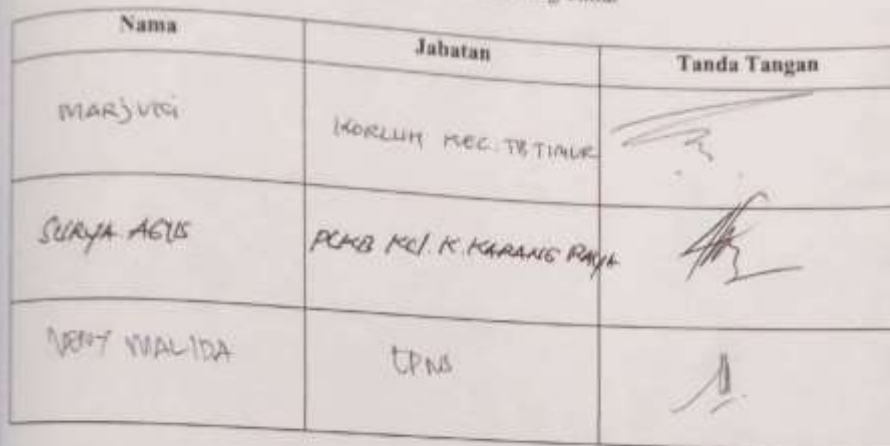 Nama Jabatan Tanda Tangan
MARJUKI KORLUH KEC. TB TIMUR
SURYA AGUS PLKB KEL. K. KARANG RAYA
MALIDA